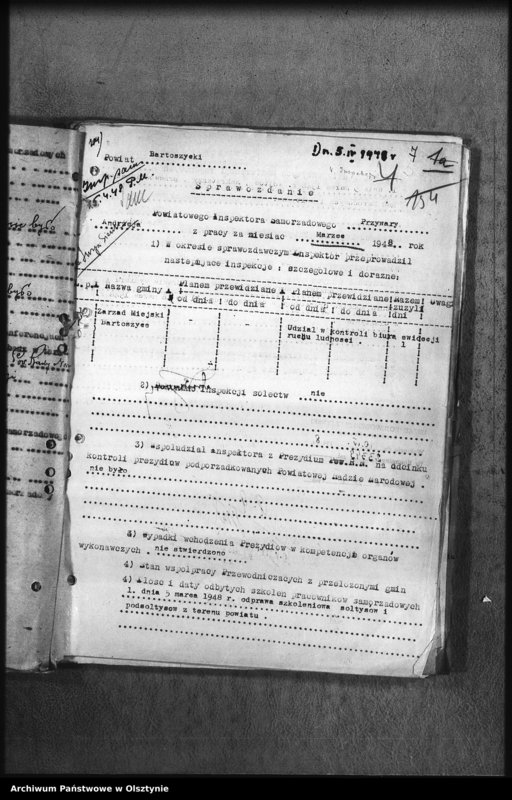 Dn. 5.IV 1948 r
7
1a
4
154
Powiat Bartoszycki
25.4.48
Sprawozdanie
Powiatowego inspektora samorzadowego Przywary
Andrzeja
z pracy za miesiac Marzec 1948. rok
1) W okresie sprawozdawczym inspektor przeprowadził
następujące inspekcje : szczegółowe i doraźne:
Nazwa gminy Planem przewidziane Planem przewidziane Razem uwag
od dnia do dnia od dnia do dnia zuzyli dni
Zarzad Miejski Udział w kontroli biura ewidecji
Bartoszyce ruchu ludnosci . 1
2) inspekcji solectw nie
3) Wspoludział inspektora z Prezydium Pow.R.N. na odcinku
kontroli prezydiów podporzadkowanych Powiatowej Radzie Narodowej .
nie było
3) Wypadki wchodzenia Prezydiów w kompetencje organów
wykonawczych . nie stwierdzono
4) Stan wspołpracy Przewodniczacych z przełożonymi gmin
4) Ilosc i daty odbytych szkolen pracownikow samorzadowych
1. dnia 5 marca 1948 r. odprawa szkoleniowa soltysow i
podsoltysow z terenu powiatu .
Archiwum Państwowe w Olsztynie